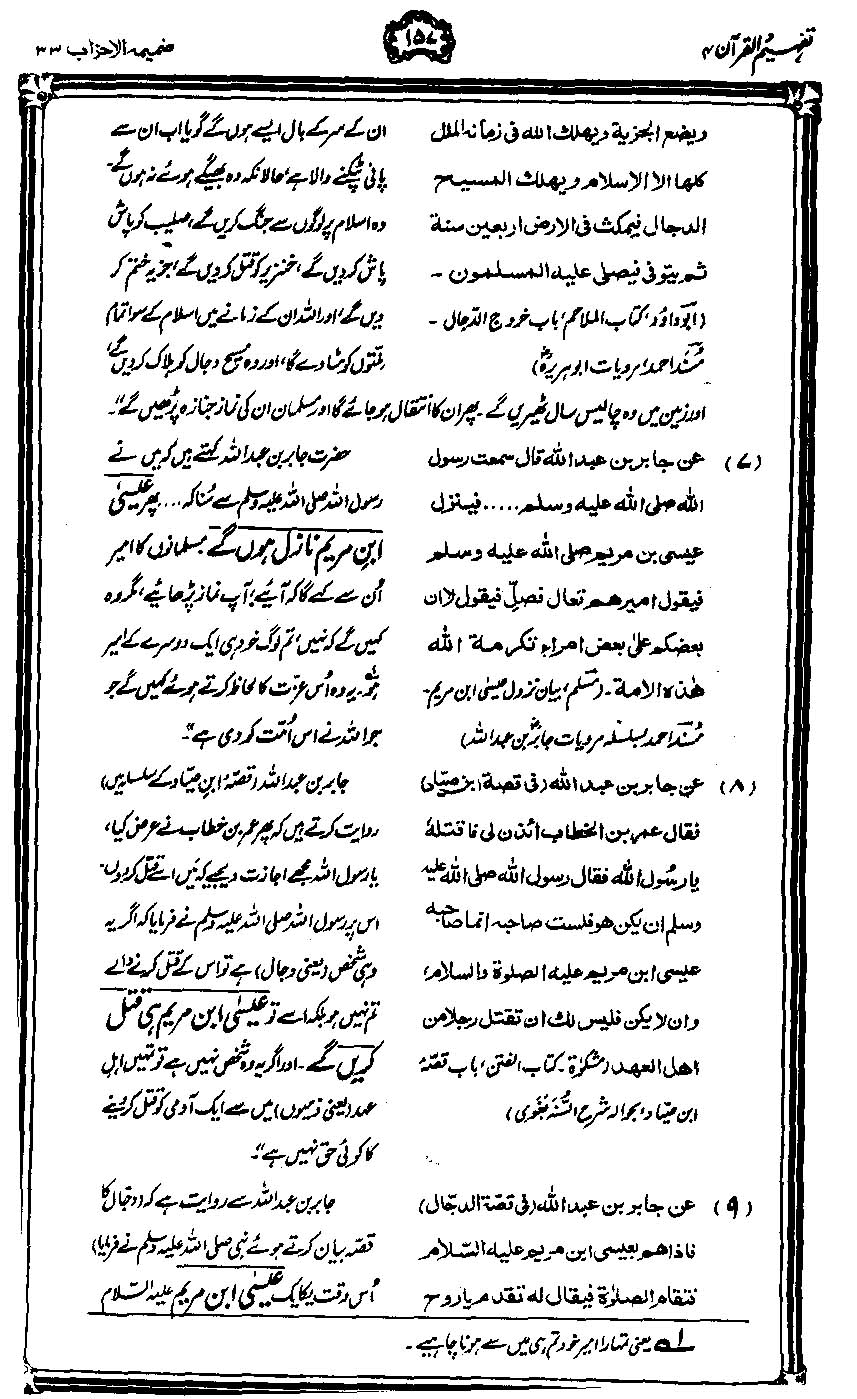 تفہیم القرآن ۴
۱۵۷
ضمیمہ الاحزاب ۳۳
ویضع الجزیة ویھلك اللہ فی زمانہ الملل
کلھا الا الاسلام ویھلك المسیح
الدجال فیمکث فی الارض اربعین سنة
ثم یتوفی فیصلی علیہ المسلمون۔
(ابوداؤد، کتاب الملاحم، باب خروج الدّجال۔
مُسند احمد، مرویات ابوہریرہؓ)
ان کے سر کے بال ایسے ہوں گے گویا اب ان سے
پانی ٹپکنے والا ہے، حالانکہ وہ بھیگے ہوئے نہ ہوں گے۔
وہ اسلام پر لوگوں سے جنگ کریں گے، صلیب کو پاش
پاش کر دیں گے، خنزیر کو قتل کر دیں گے، جزیہ ختم کر
دیں گے، اور اللہ ان کے زمانے میں اسلام کے سوا تمام
ملّتوں کو مٹا دے گا، اور وہ مسیح دجال کو ہلاک کر دیں گے،
اور زمین میں وہ چالیس سال ٹھیریں گے۔ پھر ان کا انتقال ہو جائے گا اور مسلمان ان کی نماز جنازہ پڑھیں گے"۔
(۷) عن جابر بن عبد اللہ قال سمعت رسول
اللہ صلی اللہ علیہ وسلم ..... فینزل
عیسی بن مریم صلی اللہ علیہ وسلم
فیقول امیرھم تعال فصلِّ فیقول لا ان
بعضکم علیٰ بعض امراء تکرمة اللہ
ھٰذہ الامة۔ (مسلم، بیان نزول عیسیٰ ابن مریم۔
مُسند احمد بسلسلہ مرویات جابرؓ بن عبد اللہ)
حضرت جابر بن عبد اللہ کہتے ہیں کہ میں نے
رسول اللہ صلی اللہ علیہ وسلم سے سُنا کہ .... پھر عیسیٰ
ابن مریم نازل ہوں گے مسلمانوں کا امیر
اُن سے کہے گا کہ آیئے، آپ نماز پڑھایئے، مگر وہ
کہیں گے کہ نہیں، تم لوگ خود ہی ایک دوسرے کے امیر
ہو۔ یہ وہ اُس عزت کا لحاظ کرتے ہوئے کہیں گے جو
جو اللہ نے اس اُمّت کو دی ہے"۔
(۸) عن جابر بن عبد اللہ (فی قصة ابن صیاد)
فقال عمر بن الخطاب ائذن لی فاقتلہ
یا رسُول اللہ فقال رسول اللہ صلی اللہ علیہ
وسلم ان یکن ھو فلست صاحبہ انما صاحبہ
عیسی ابن مریم علیہ الصلوة والسلام،
وان لا یکن فلیس لك ان تقتل رجلا من
اھل العھد (مشکوٰة۔ کتاب الفتن، باب قصّہ
ابن صیاد، بحوالہ شرح السُّنّہ بَغَوی)
جابر بن عبد اللہ (قصّۂ ابن صیّاد کے سلسلہ میں)
روایت کرتے ہیں کہ پھر عمر بن خطاب نے عرض کیا،
یا رسول اللہ مجھے اجازت دیجیے کہ میں اسے قتل کر دوں۔
اس پر رسول اللہ صلی اللہ علیہ وسلم نے فرمایا کہ اگر یہ
وہی شخص (یعنی دجال) ہے تو اس کے قتل کرنے والے
تم نہیں ہو بلکہ اسے تو عیسیٰ ابن مریم ہی قتل
کریں گے۔ اور اگر یہ وہ شخص نہیں ہے تو تمہیں اہل
عہد (یعنی ذمیوں) میں سے ایک آدمی کو قتل کر دینے
کا کوئی حق نہیں ہے"۔
(۹) عن جابر بن عبد اللہ (فی قصّة الدجّال)
فاذا ھم بعیسی ابن مریم علیہ السّلام
فتقام الصلوٰة فیقال لہ تقدم یا روح
جابر بن عبد اللہ سے روایت ہے کہ (دجّال کا
قصّہ بیان کرتے ہوئے نبی صلی اللہ علیہ وسلم نے فرمایا)
اُس وقت یکایک عیسیٰ ابن مریم علیہ السّلام
لے یعنی تمہارا امیر خود تم ہی میں سے ہونا چاہیے۔